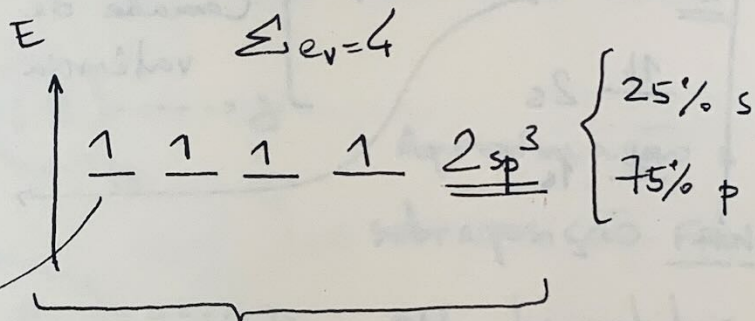 E
Σ eᵥ = 4
1 1 1 1 2sp³
25% s
75% p